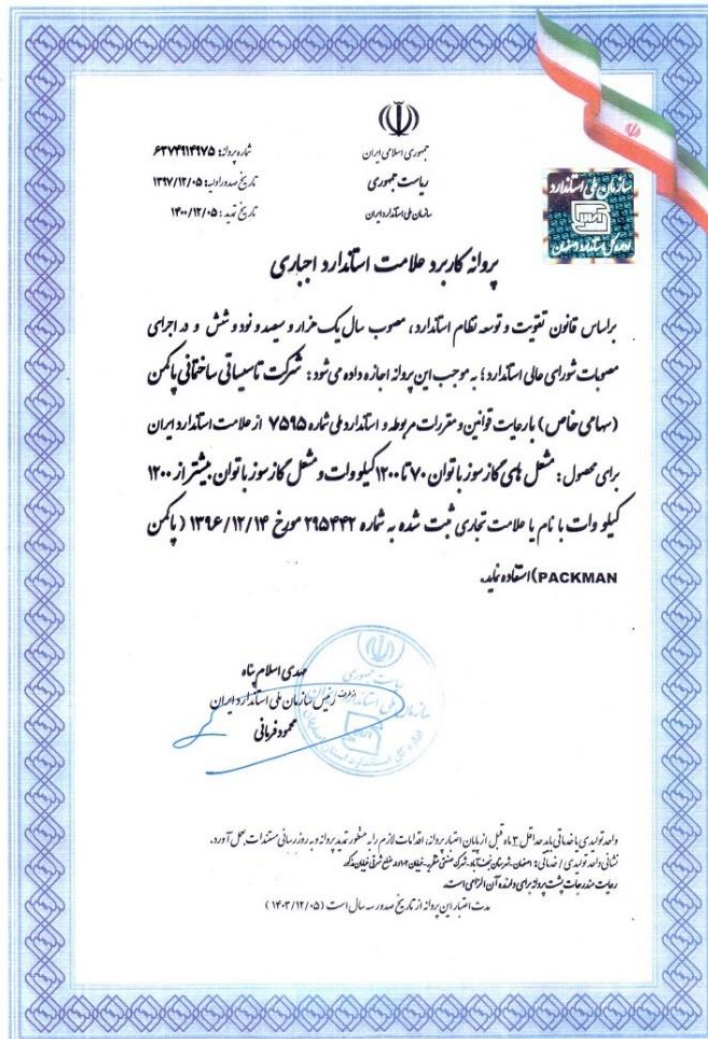 جمهوری اسلامی ایران
ریاست جمهوری
سازمان ملی استاندارد ایران
شماره پروانه: ۶۳۷۴۹۱۴۹۷۵
تاریخ صدور اولیه: ۱۳۹۷/۱۲/۰۵
تاریخ تمدید: ۱۴۰۰/۱۲/۰۵
سازمان ملی استاندارد
اداره کل استاندارد اصفهان
پروانه کاربرد علامت استاندارد اجباری
براساس قانون تقویت و توسعه نظام استاندارد، مصوب سال یک هزار و سیصد و نود و شش و در اجرای
مصوبات شورای عالی استاندارد؛ به موجب این پروانه اجازه داده می‌شود: شرکت تاسیساتی ساختمانی پاکمن
(سهامی خاص) با رعایت قوانین و مقررات مربوطه و استاندارد ملی شماره ۷۵۹۵ از علامت استاندارد ایران
برای محصول: مشعل های گازسوز با توان ۷۰ تا ۱۲۰۰ کیلووات و مشعل گازسوز با توان بیشتر از ۱۲۰۰
کیلو وات با نام یا علامت تجاری ثبت شده به شماره ۲۹۵۴۴۲ مورخ ۱۳۹۶/۱۲/۱۴ (پاکمن
PACKMAN) استفاده نماید.
مهدی اسلام پناه
از طرف رئیس سازمان ملی استاندارد ایران
محمود فرمانی
واحد تولیدی یا خدماتی باید حداقل ۳ ماه قبل از پایان اعتبار پروانه، اقدامات لازم را به منظور تمدید پروانه و به روز رسانی مستندات بعمل آورد.
نشانی واحد تولیدی / خدماتی: اصفهان، شهرستان نجف آباد، شهرک صنعتی
رعایت مندرجات پشت پروانه برای دارنده آن الزامی است.
مدت اعتبار این پروانه از تاریخ صدور سه سال است (۱۴۰۳/۱۲/۰۵)